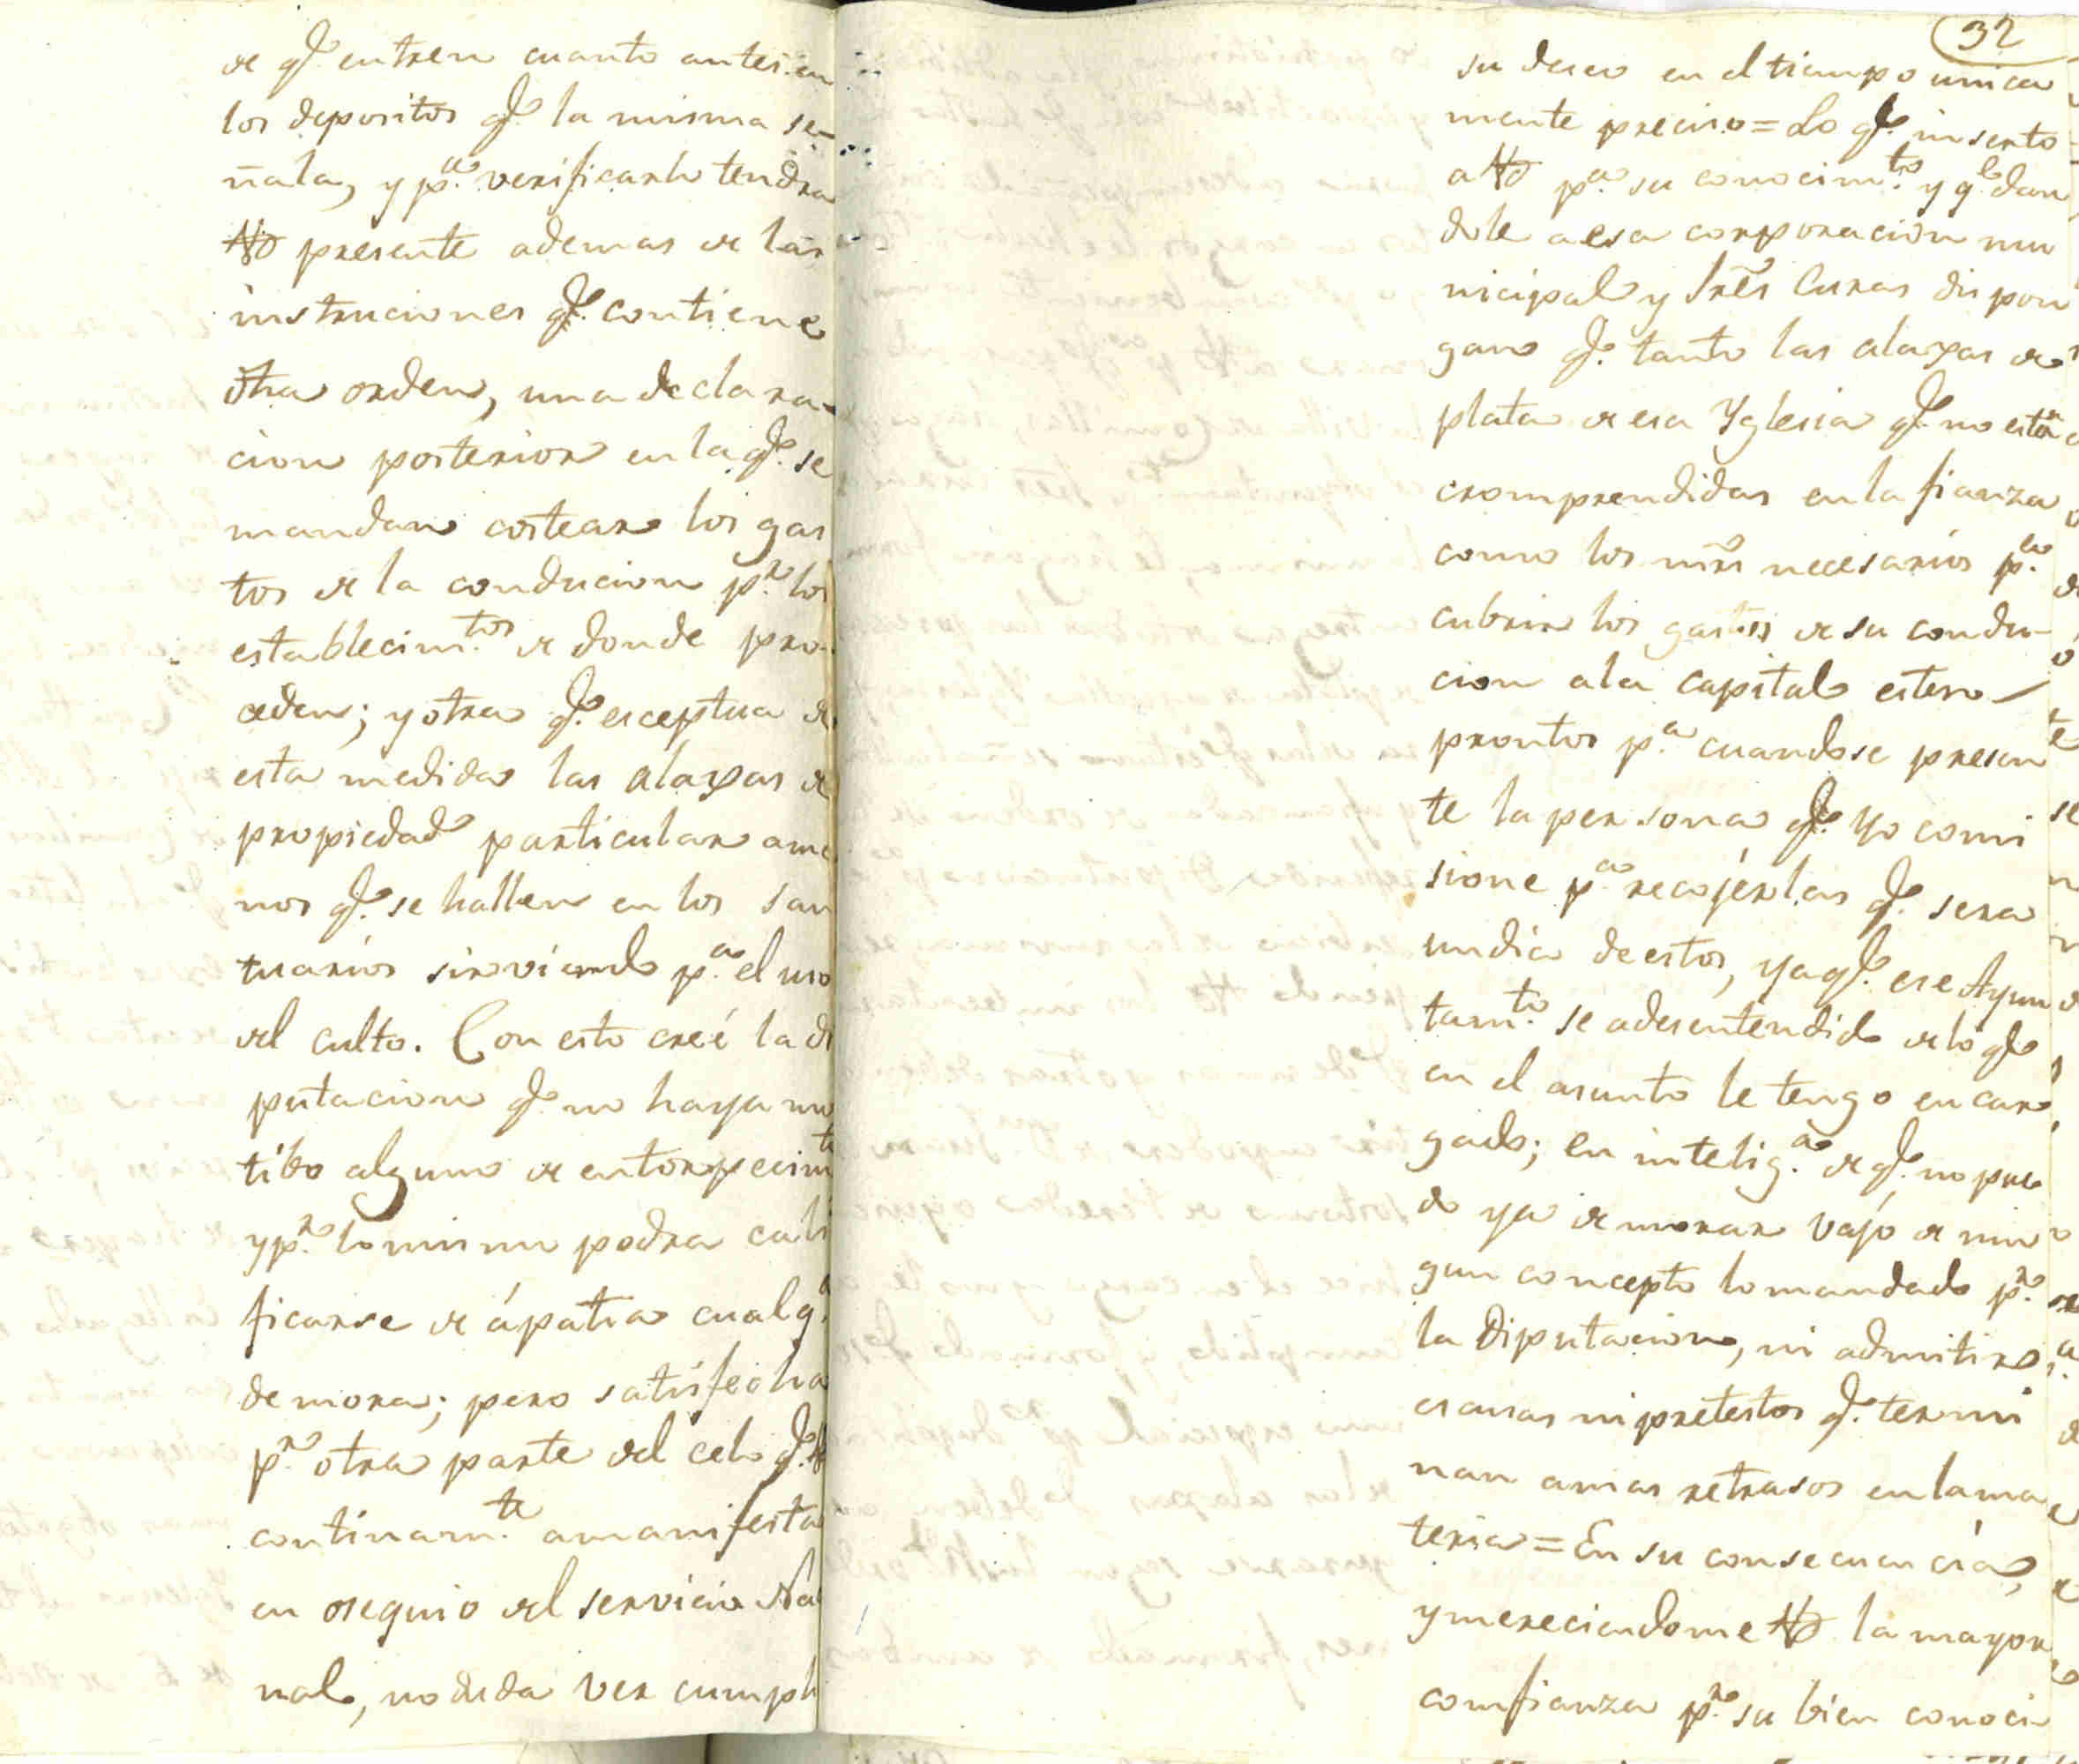 de q.e entren cuanto antes en
los depositos q.e la misma se-
ñala, y p.a verificarlo tendra
VS presente ademas de las
instruciones q.e contiene
otra orden, una declara-
cion posterior en la q.e se
mandan costear los gas
tos de la conducion p.r los
establecim.tos de donde pro-
ceden; y otra q.e esceptua de
esta medida las alaxas de
propiedad particular ame
nos q.e se hallen en los san
tuarios sirviendo p.a el uso
del culto. Con esto creé la di
putacion q.e no haya mo
tibo alguno de entorpecim.to
y p.r lo mismo podra cali
ficarse de ápatia cualq.a
demora; pero satisfecha
p.r otra parte del celo q.e VS
continam.te amanifesta
en osequio del servicio Na
nal, no duda ver cumpli
32
su deseo en el tiempo unica
mente preciso = Lo q.e inserto
a VS p.a su conocim.to y q.e dan
dole a esa corporacion mu
nicipal y Sres Curas dispon
gan q.e tanto las alaxas de
plata de esa Yglesia q.e no estén
cromprendidas en la fianza
como los mrs necesarios p.a
cubrir los gastos de su condu-
cion a la capital esten
prontos p.a cuando se presen
te la persona q.e Yo comi
sione p.a recojerlas q.e sera
undia de estos, ya q.e ese Ayun
tam.to se adesentendido de lo q.e
en el asunto le tengo encar
gado; en intelig.a de q.e no pue
do ya demorar vajo de nin
gun concepto lo mandado p.r
la Diputacion, ni admitir
escusas ni pretestos q.e termi
nan amas retrasos en la ma
teria = En su consecuencia,
y mereciendome VS la mayor
comfianza p.r su bien conoci